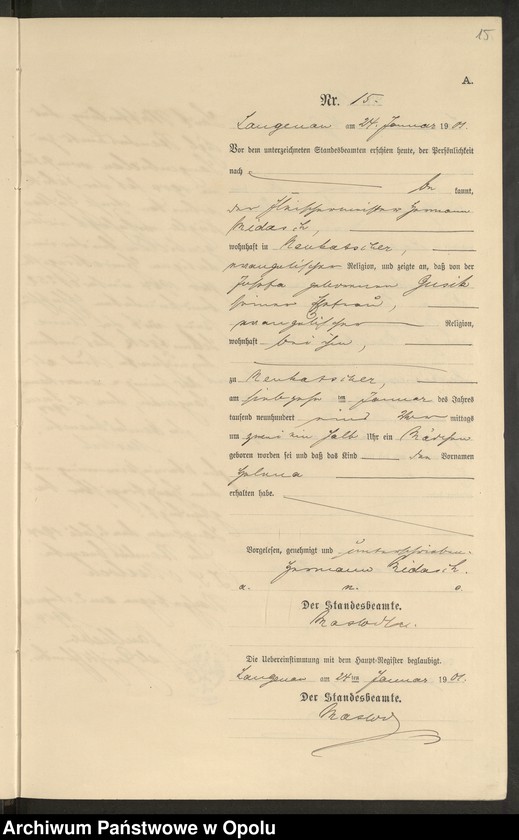 15.
A.
Nr. 15.
Langenau am 24. Januar 1901.
Vor dem unterzeichneten Standesbeamten erschien heute, der Persönlichkeit
nach be kannt,
der Fleischermeister Hermann
wohnhaft in
evangelischer Religion, und zeigte an, daß von der
geborenen
seiner Ehefrau,
evangelischer Religion,
wohnhaft bei ihm,
zu
am siebzehn ten Januar des Jahres
tausend neunhundert eins Vor mittags
um zwei ein halb Uhr ein Mädchen
geboren worden sei und daß das Kind den Vornamen
Helena
erhalten habe.
Vorgelesen, genehmigt und unterschrieben.
Hermann
a. n. o.
Der Standesbeamte.
Die Uebereinstimmung mit dem Haupt-Register beglaubigt.
Langenau am 24 ten Januar 1901.
Der Standesbeamte.
Archiwum Państwowe w Opolu